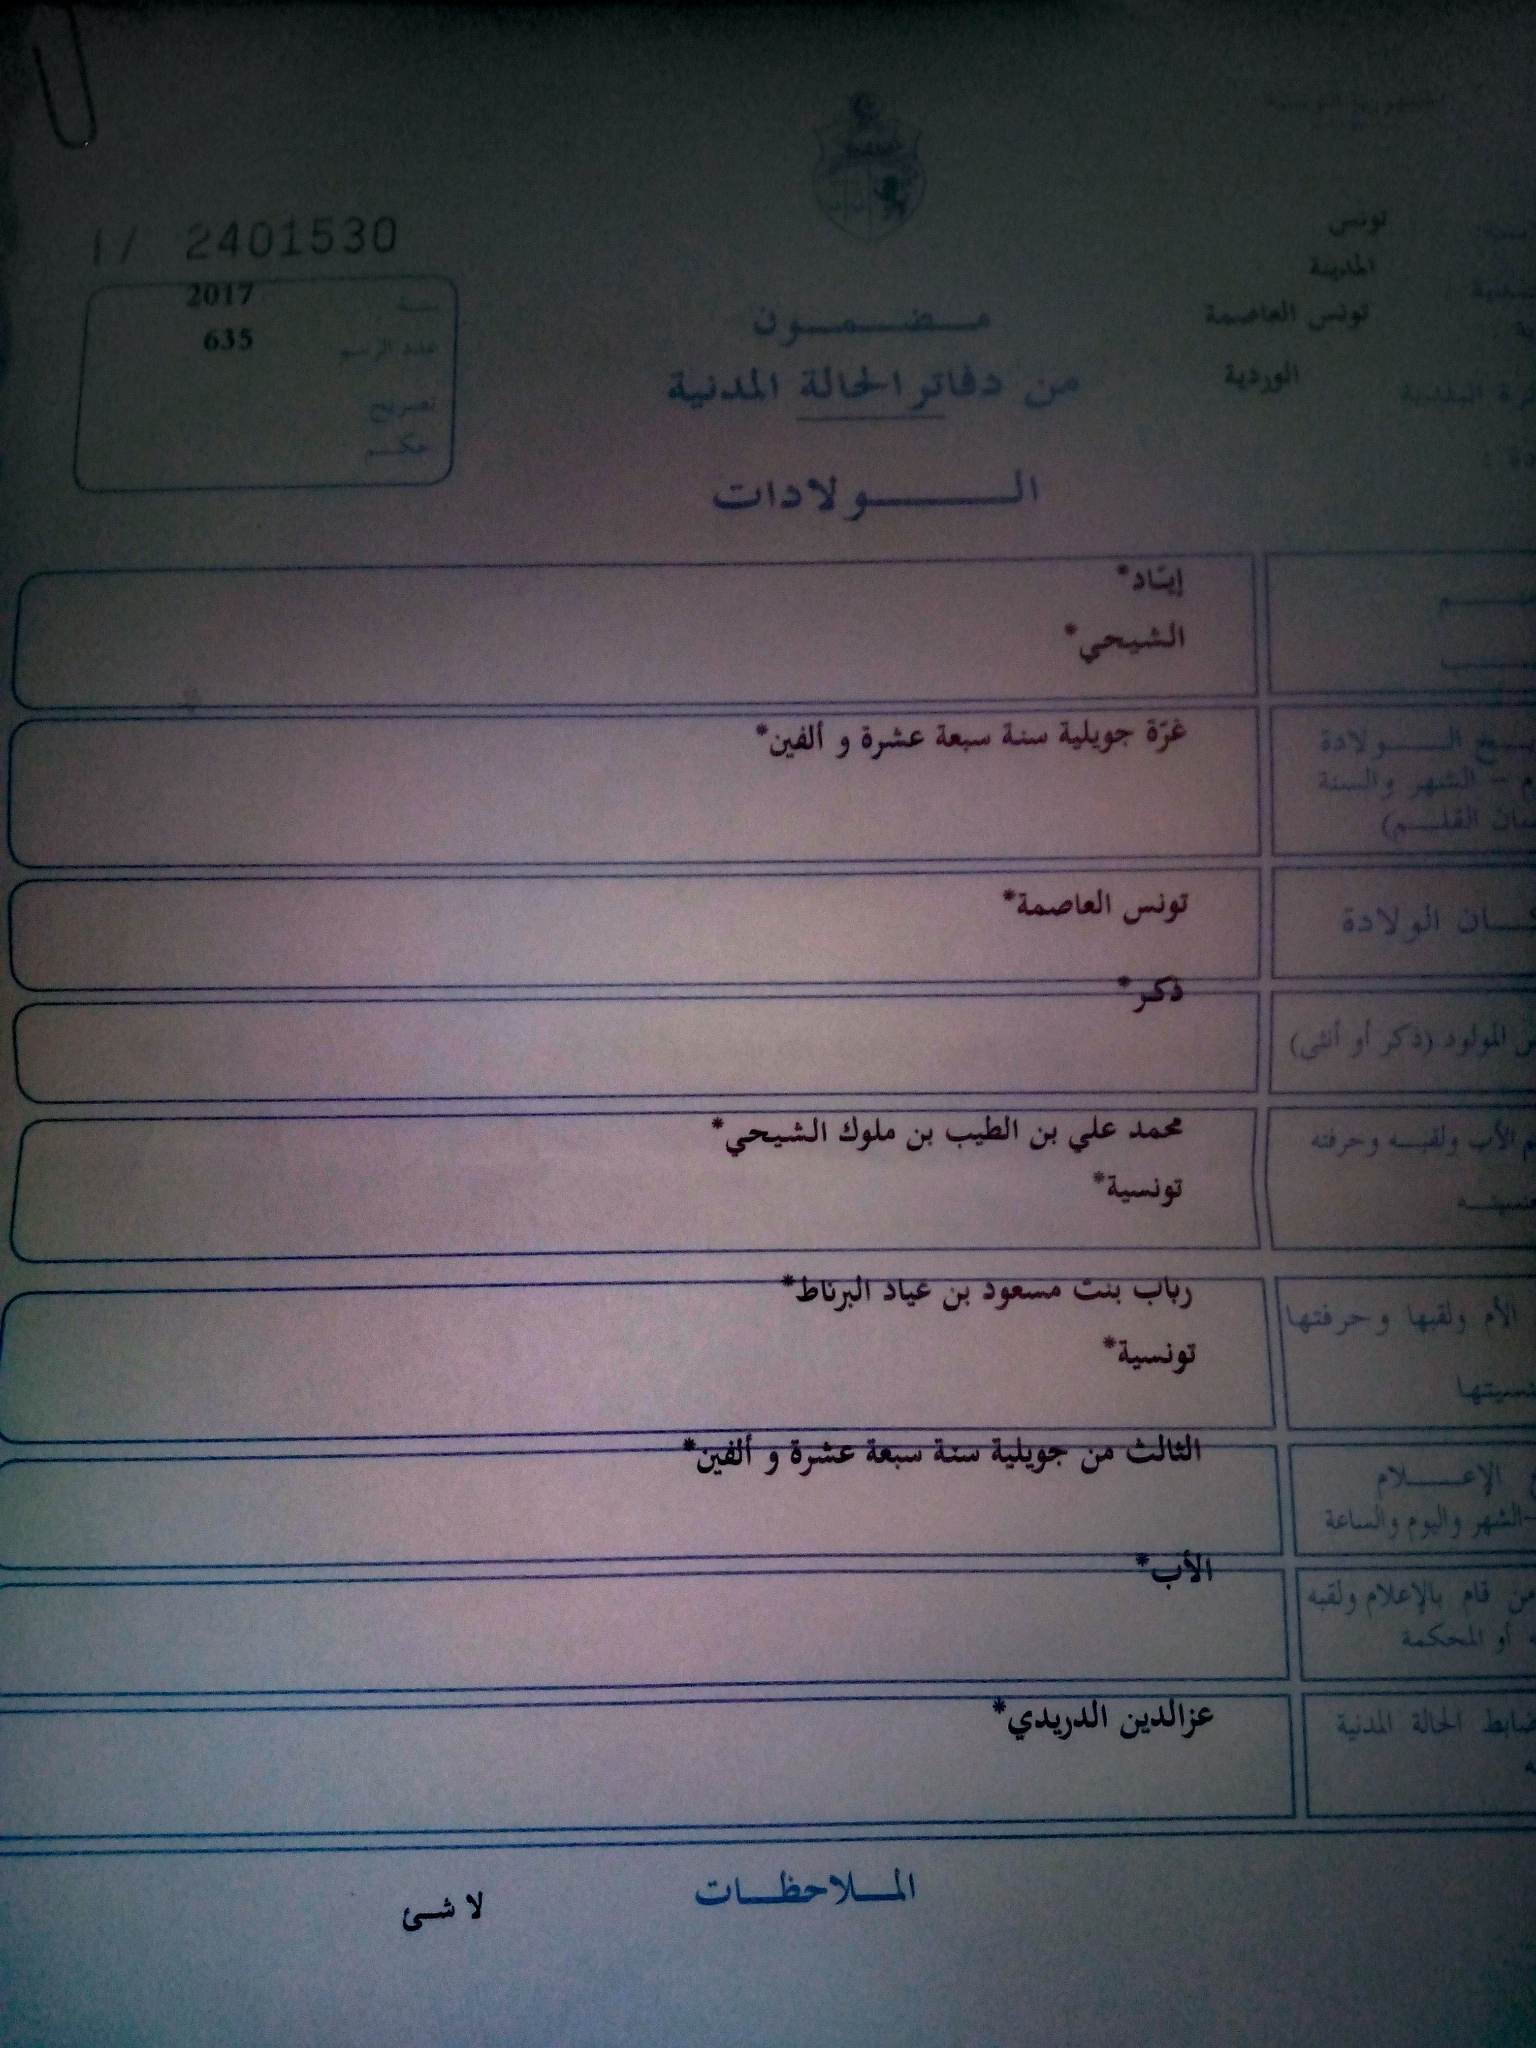 تونس
المدينة
تونس العاصمة
الوردية
1/ 2401530
سنة 2017
عدد الرسم 635
تصريح
حكم
مضمون
من دفاتر الحالة المدنية
الولادات
إيـّاد*
الشيحي*
الولادة
الشهر والسنة
القلم)
غرّة جويلية سنة سبعة عشرة و ألفين*
الولادة
تونس العاصمة*
المولود (ذكر أو أنثى)
ذكر*
الأب ولقبه وحرفته
محمد علي بن الطيب بن ملوك الشيحي*
تونسية*
الأم ولقبها وحرفتها
رباب بنت مسعود بن عياد البرناط*
تونسية*
الإعلام
-الشهر واليوم والساعة
الثالث من جويلية سنة سبعة عشرة و ألفين*
من قام بالإعلام ولقبه
أو المحكمة
الأب*
ضابط الحالة المدنية
عزالدين الدريدي*
الملاحظات
لا شئ